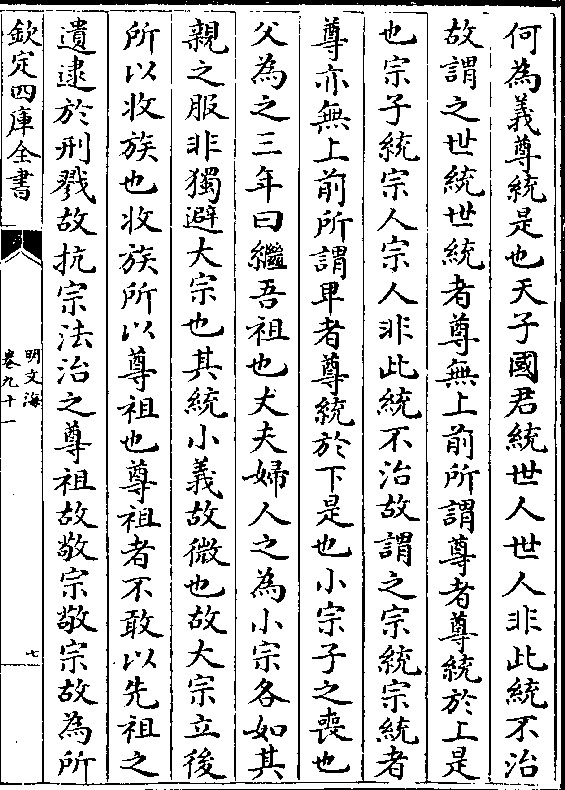 何為義尊統是也天子國君統世人世人非此統不治
故謂之世統世統者尊無上前所謂尊者尊統於上是
也宗子統宗人宗人非此統不治故謂之宗統宗統者
尊亦無上前所謂卑者尊統於下是也小宗子之喪也
父為之三年曰繼吾祖也大夫婦人之為小宗各如其
親之服非獨避大宗也其統小義故微也故大宗立後
所以收族也收族所以尊祖也尊祖者不敢以先祖之
遺逮於刑戮故抗宗法治之尊祖故敬宗敬宗故為所
欽定四庫全書
明文海
卷九十一
七